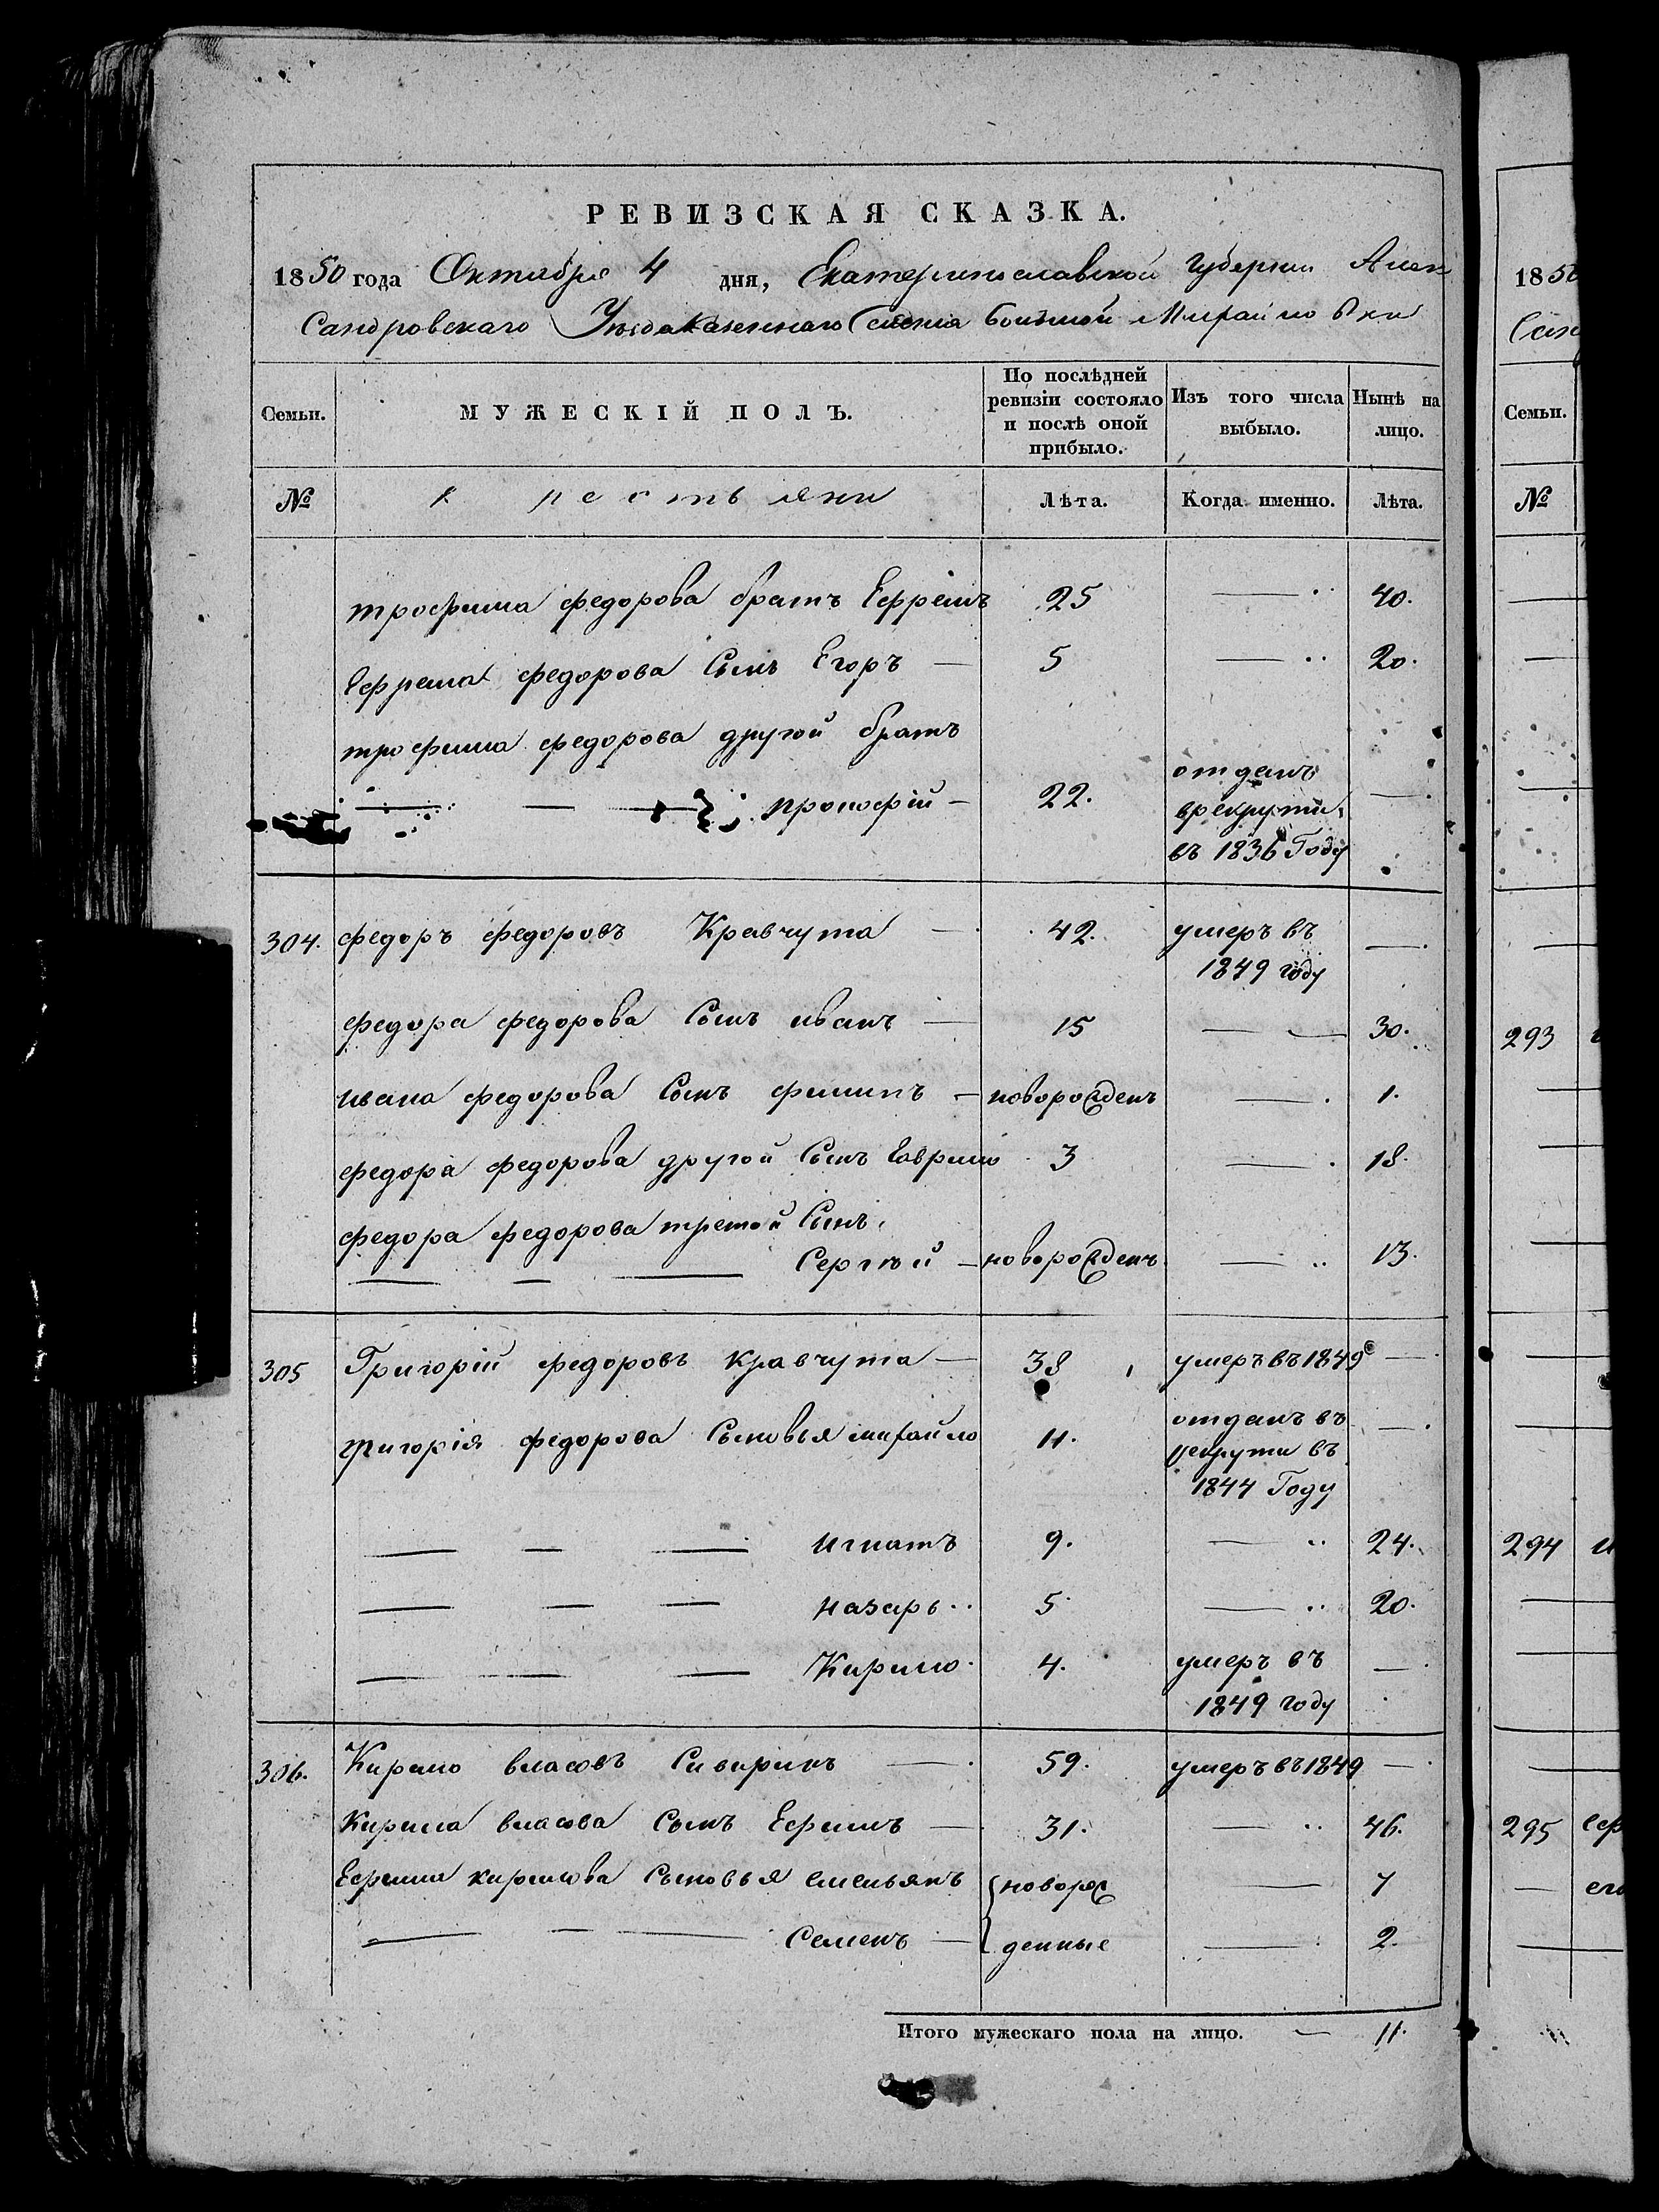 РЕВИЗСКАЯ СКАЗКА.
1850 года Октября 4 дня, Екатеринославской Губернии Алек
Сандровскаго Уезда Казеннаго Селения Большой Михайловки
Семьи.
МУЖЕСКІЙ ПОЛЪ.
По послѣдней ревизіи состояло и послѣ оной прибыло.
Изъ того числа выбыло.
Нынѣ на лицо.
№
крестьяни
Лѣта.
Когда именно.
Лѣта.
трофима федорова братъ Ефремъ 25 — 40.
Ефрема федорова Сынъ Егоръ — 5 — 20.
трофима федорова другой братъ
прокофій — 22. отданъ врекруты въ 1836 Году —
304. федоръ федоровъ Кравчута — 42. умеръ въ 1849 году —
федора федорова Сынъ иванъ — 15 — 30.
ивана федорова Сынъ филипъ — новорожденъ — 1.
федора федорова другой Сынъ Гаврило 3 — 18.
федора федорова третой Сынъ
Сергѣй — новорожденъ — 13.
305 Григорій федоровъ кравчута — 38 умеръ въ 1849 —
григорія федорова Сыновья михайло 11. отданъ въ рекруты въ 1844 Году —
— — — игнатъ 9. — 24.
— — — назаръ 5 — 20.
— — — Кирило 4. умеръ въ 1849 году —
306. Кирило власовъ Сиваринъ — 59. умеръ въ 1849 —
Кирила власова Сынъ Ефимъ — 31. — 46.
Ефима кирилова Сыновья емельянъ новорож — 7
— — — Семенъ — денные — 2.
Итого мужескаго пола на лицо. — 11.
185
Сан
Семьи.
№
293
294
295